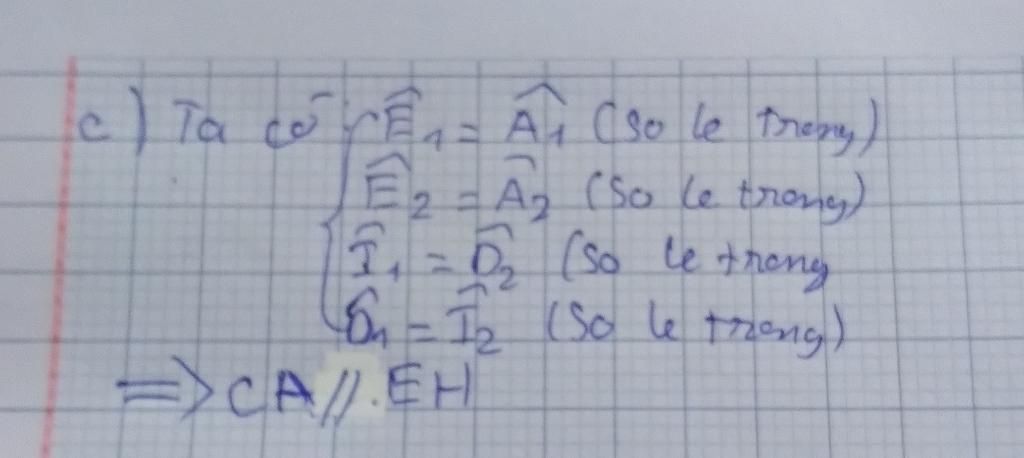 c) Ta có { Ê₁ = Â₁ (so le trong)
Ê₂ = Â₂ (so le trong)
Î₁ = D̂₂ (so le trong
D̂₁ = Î₂ (so le trong)
=> CA // EH